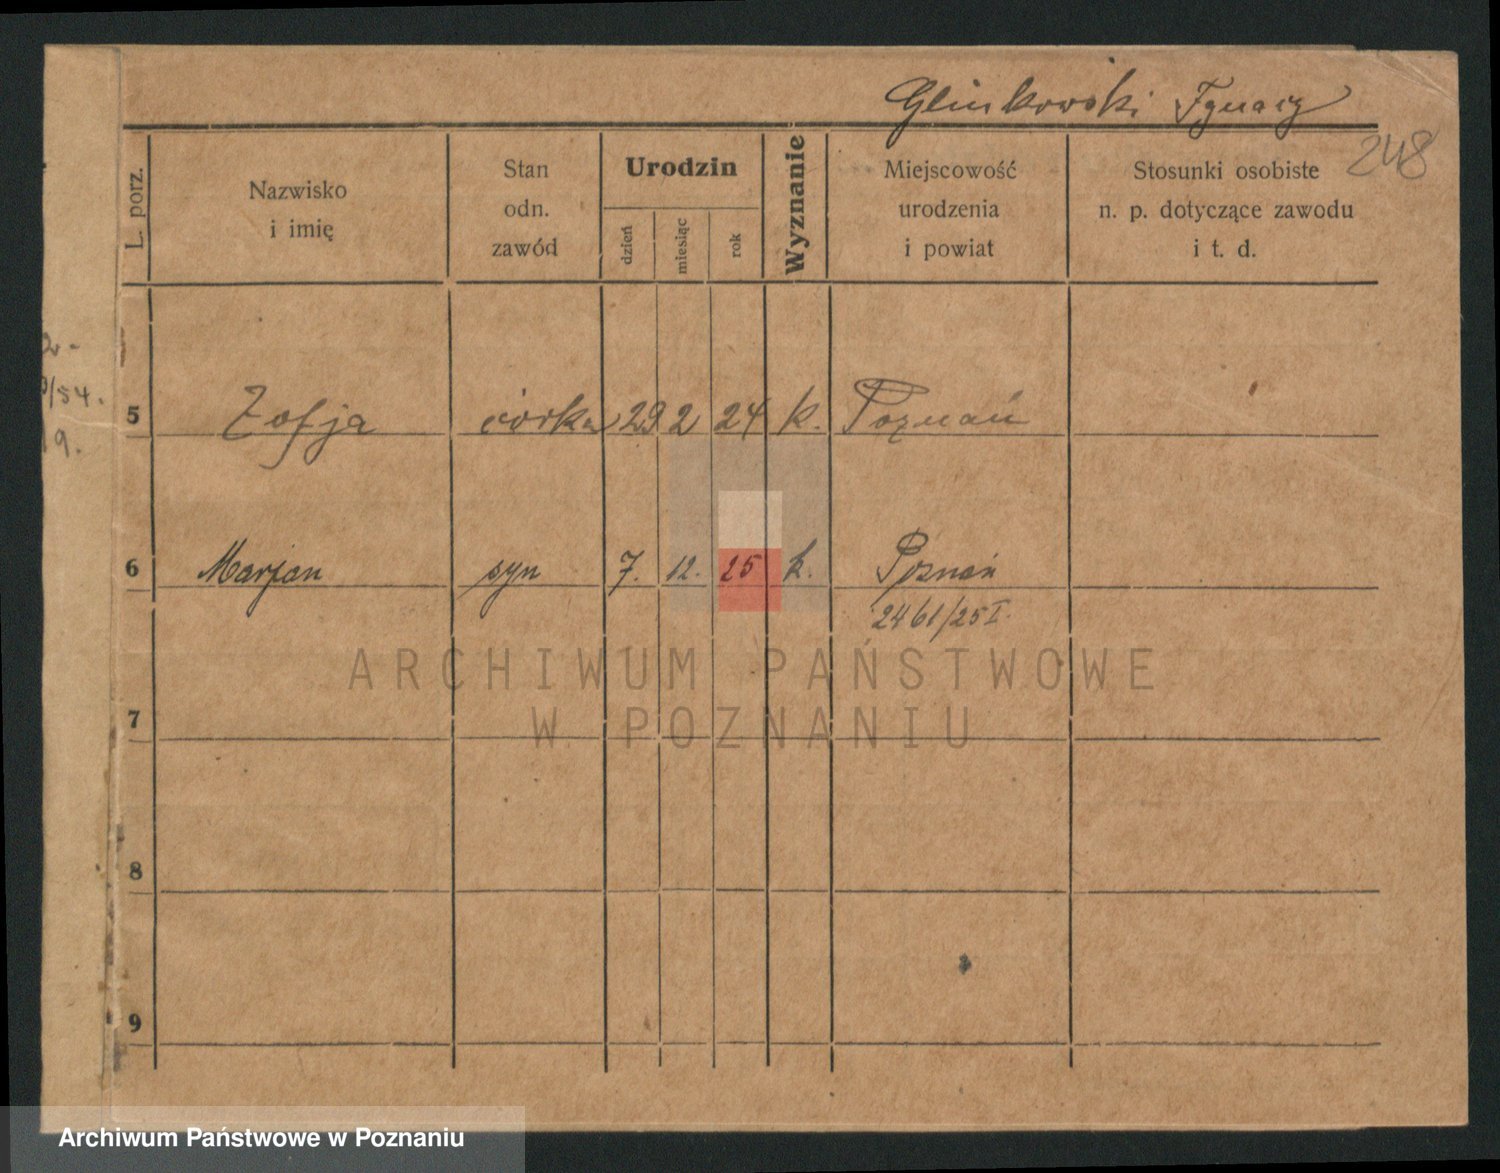 Glinkowski Ignacy
248
L. porz.
Nazwisko
i imię
Stan
odn.
zawód
Urodzin
dzień
miesiąc
rok
Wyznanie
Miejscowość
urodzenia
i powiat
Stosunki osobiste
n. p. dotyczące zawodu
i t. d.
/54.
19.
5 Zofja córka 29 2 24 k. Poznań
6 Marjan syn 7. 12. 25 k. Poznań
2461/25 I.
ARCHIWUM PAŃSTWOWE
W POZNANIU
7
8
9
Archiwum Państwowe w Poznaniu